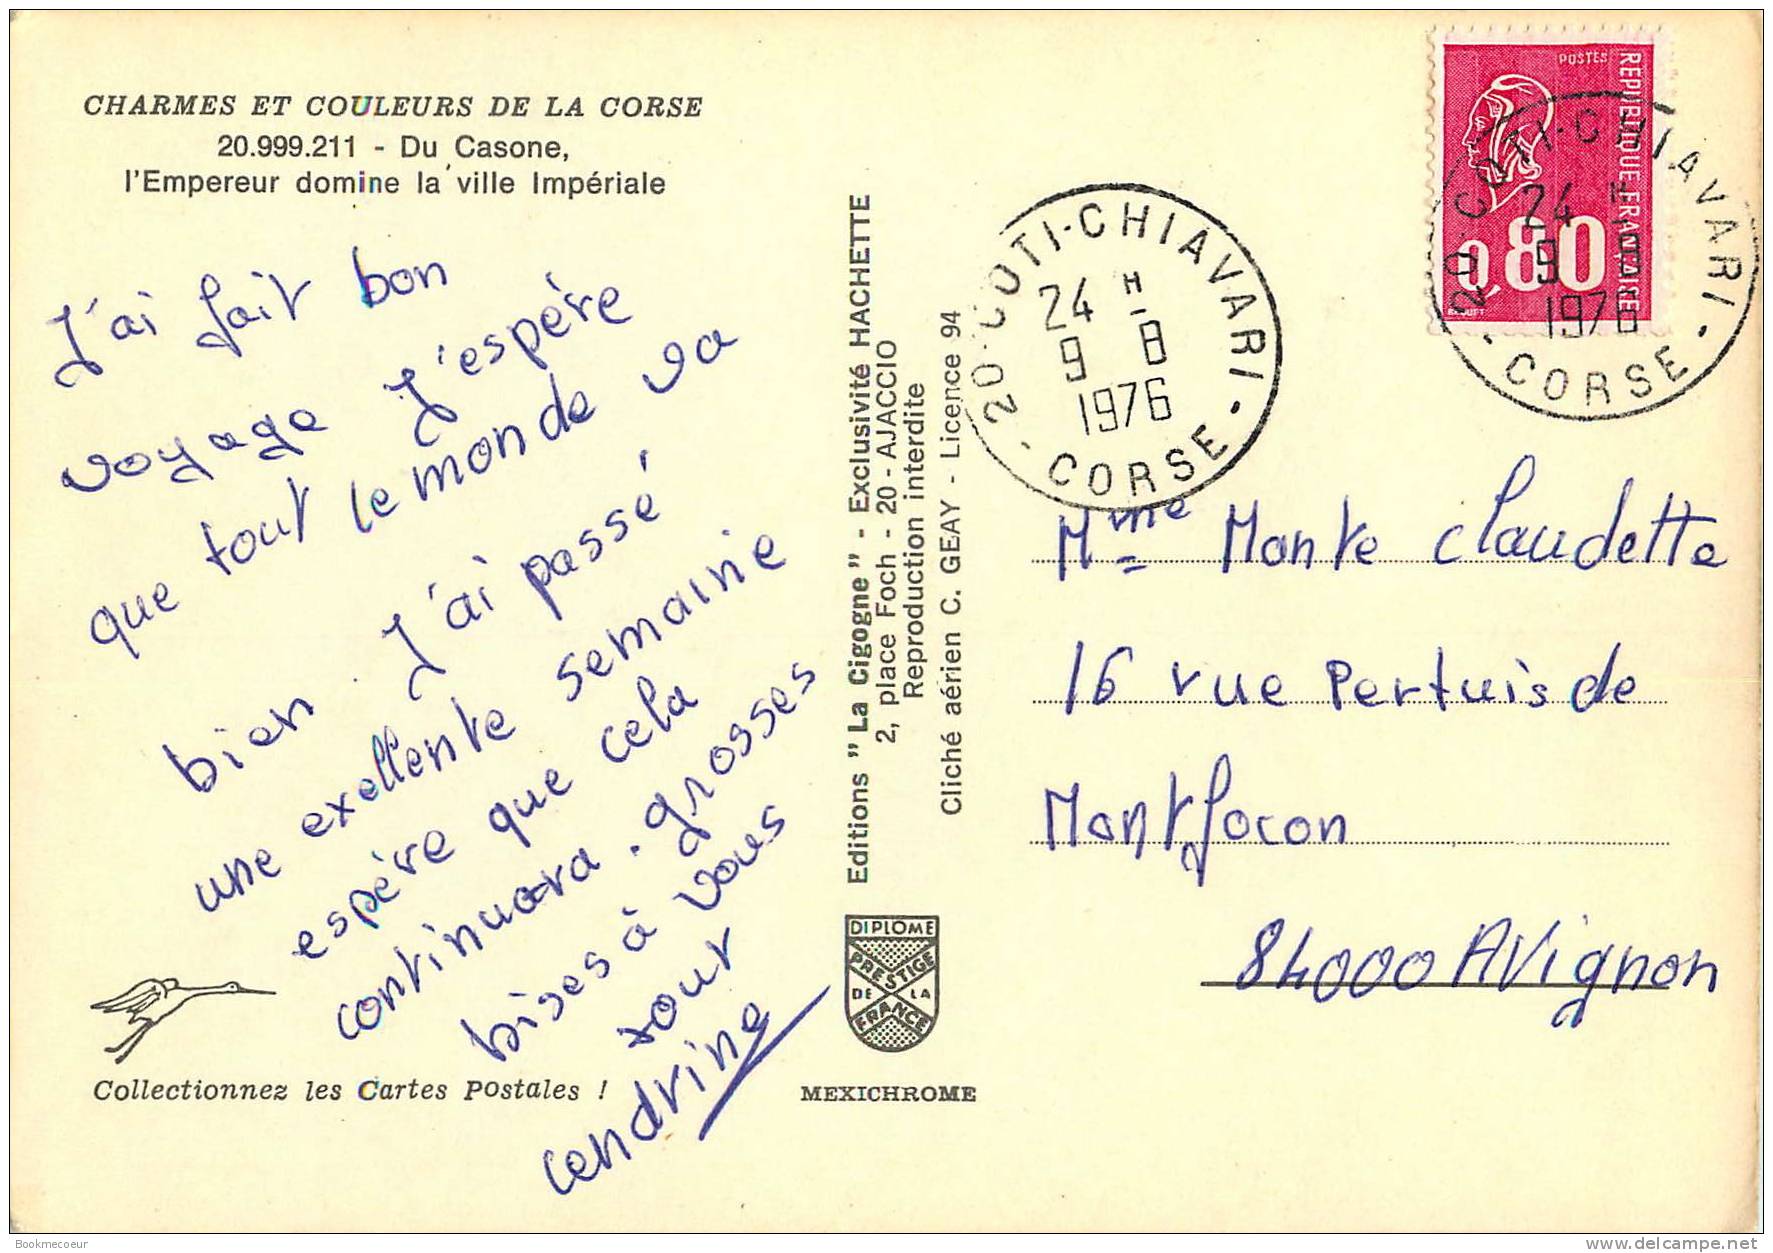 CHARMES ET COULEURS DE LA CORSE
20.999.211 - Du Casone,
l'Empereur domine la ville Impériale
J'ai fait bon
voyage J'espère
que tout le monde va
bien. J'ai passé
une exellente semaine
espère que cela
continuara. grosses
bises à vous
tout
Cendrine
Collectionnez les Cartes Postales !
Editions "La Cigogne" - Exclusivité HACHETTE
2, place Foch - 20 - AJACCIO
Reproduction interdite
Cliché aérien C. GEAY - Licence 94
DIPLOME
PRESTIGE
DE LA
FRANCE
MEXICHROME
20 COTI-CHIAVARI
24 H
9 8
1976
- CORSE -
POSTES
REPUBLIQUE FRANÇAISE
0,80
BEQUET
20 COTI-CHIAVARI
24 H
9 8
1976
- CORSE -
Mme Monte Claudette
16 rue Pertuis de
Montfocon
84000 AVignon
Bookmecoeur
delcampe.net